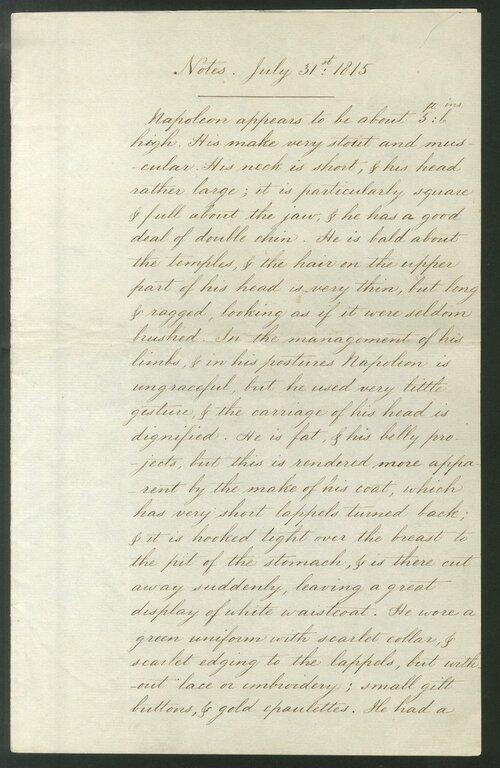 Notes. July 31st: 1815
Napoleon appears to be about 5ft: 6ins
high. His make very stout and mus-
-cular. His neck is short, & his head
rather large; it is particularly square
& full about the jaw, & he has a good
deal of double chin. He is bald about
the temples, & the hair on the upper
part of his head is very thin, but long
& ragged, looking as if it were seldom
brushed. In the management of his
limbs, & in his postures Napoleon is
ungraceful, but he used very little
gesture, & the carriage of his head is
dignified. He is fat, & his belly pro-
-jects, but this is rendered more appa-
-rent by the make of his coat, which
has very short lappels turned back;
& it is hooked tight over the breast to
the pit of the stomach, & is there cut
away suddenly, leaving a great
display of white waistcoat. He wore a
green uniform with scarlet collar, &
scarlet edging to the lappels, but with-
-out lace or embroidery; small gilt
buttons, & gold epaulettes. He had a